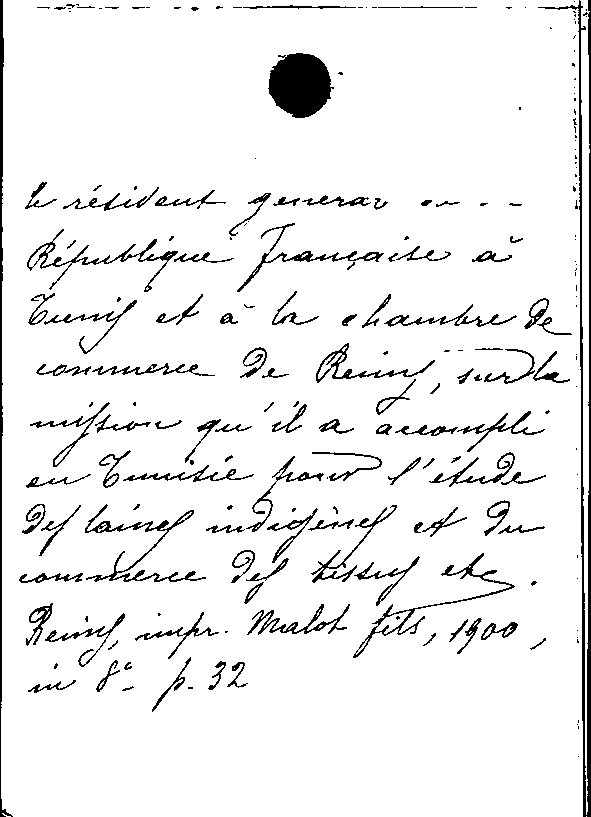 le résident general ....
République française à
Tunis et à la chambre de
commerce de Reims, sur la
mission qu'il a accompli
en Tunisie pour l'étude
des laines indigènes et du
commerce des tissus etc.
Reims, impr. Malot fils, 1900,
in 8° p. 32